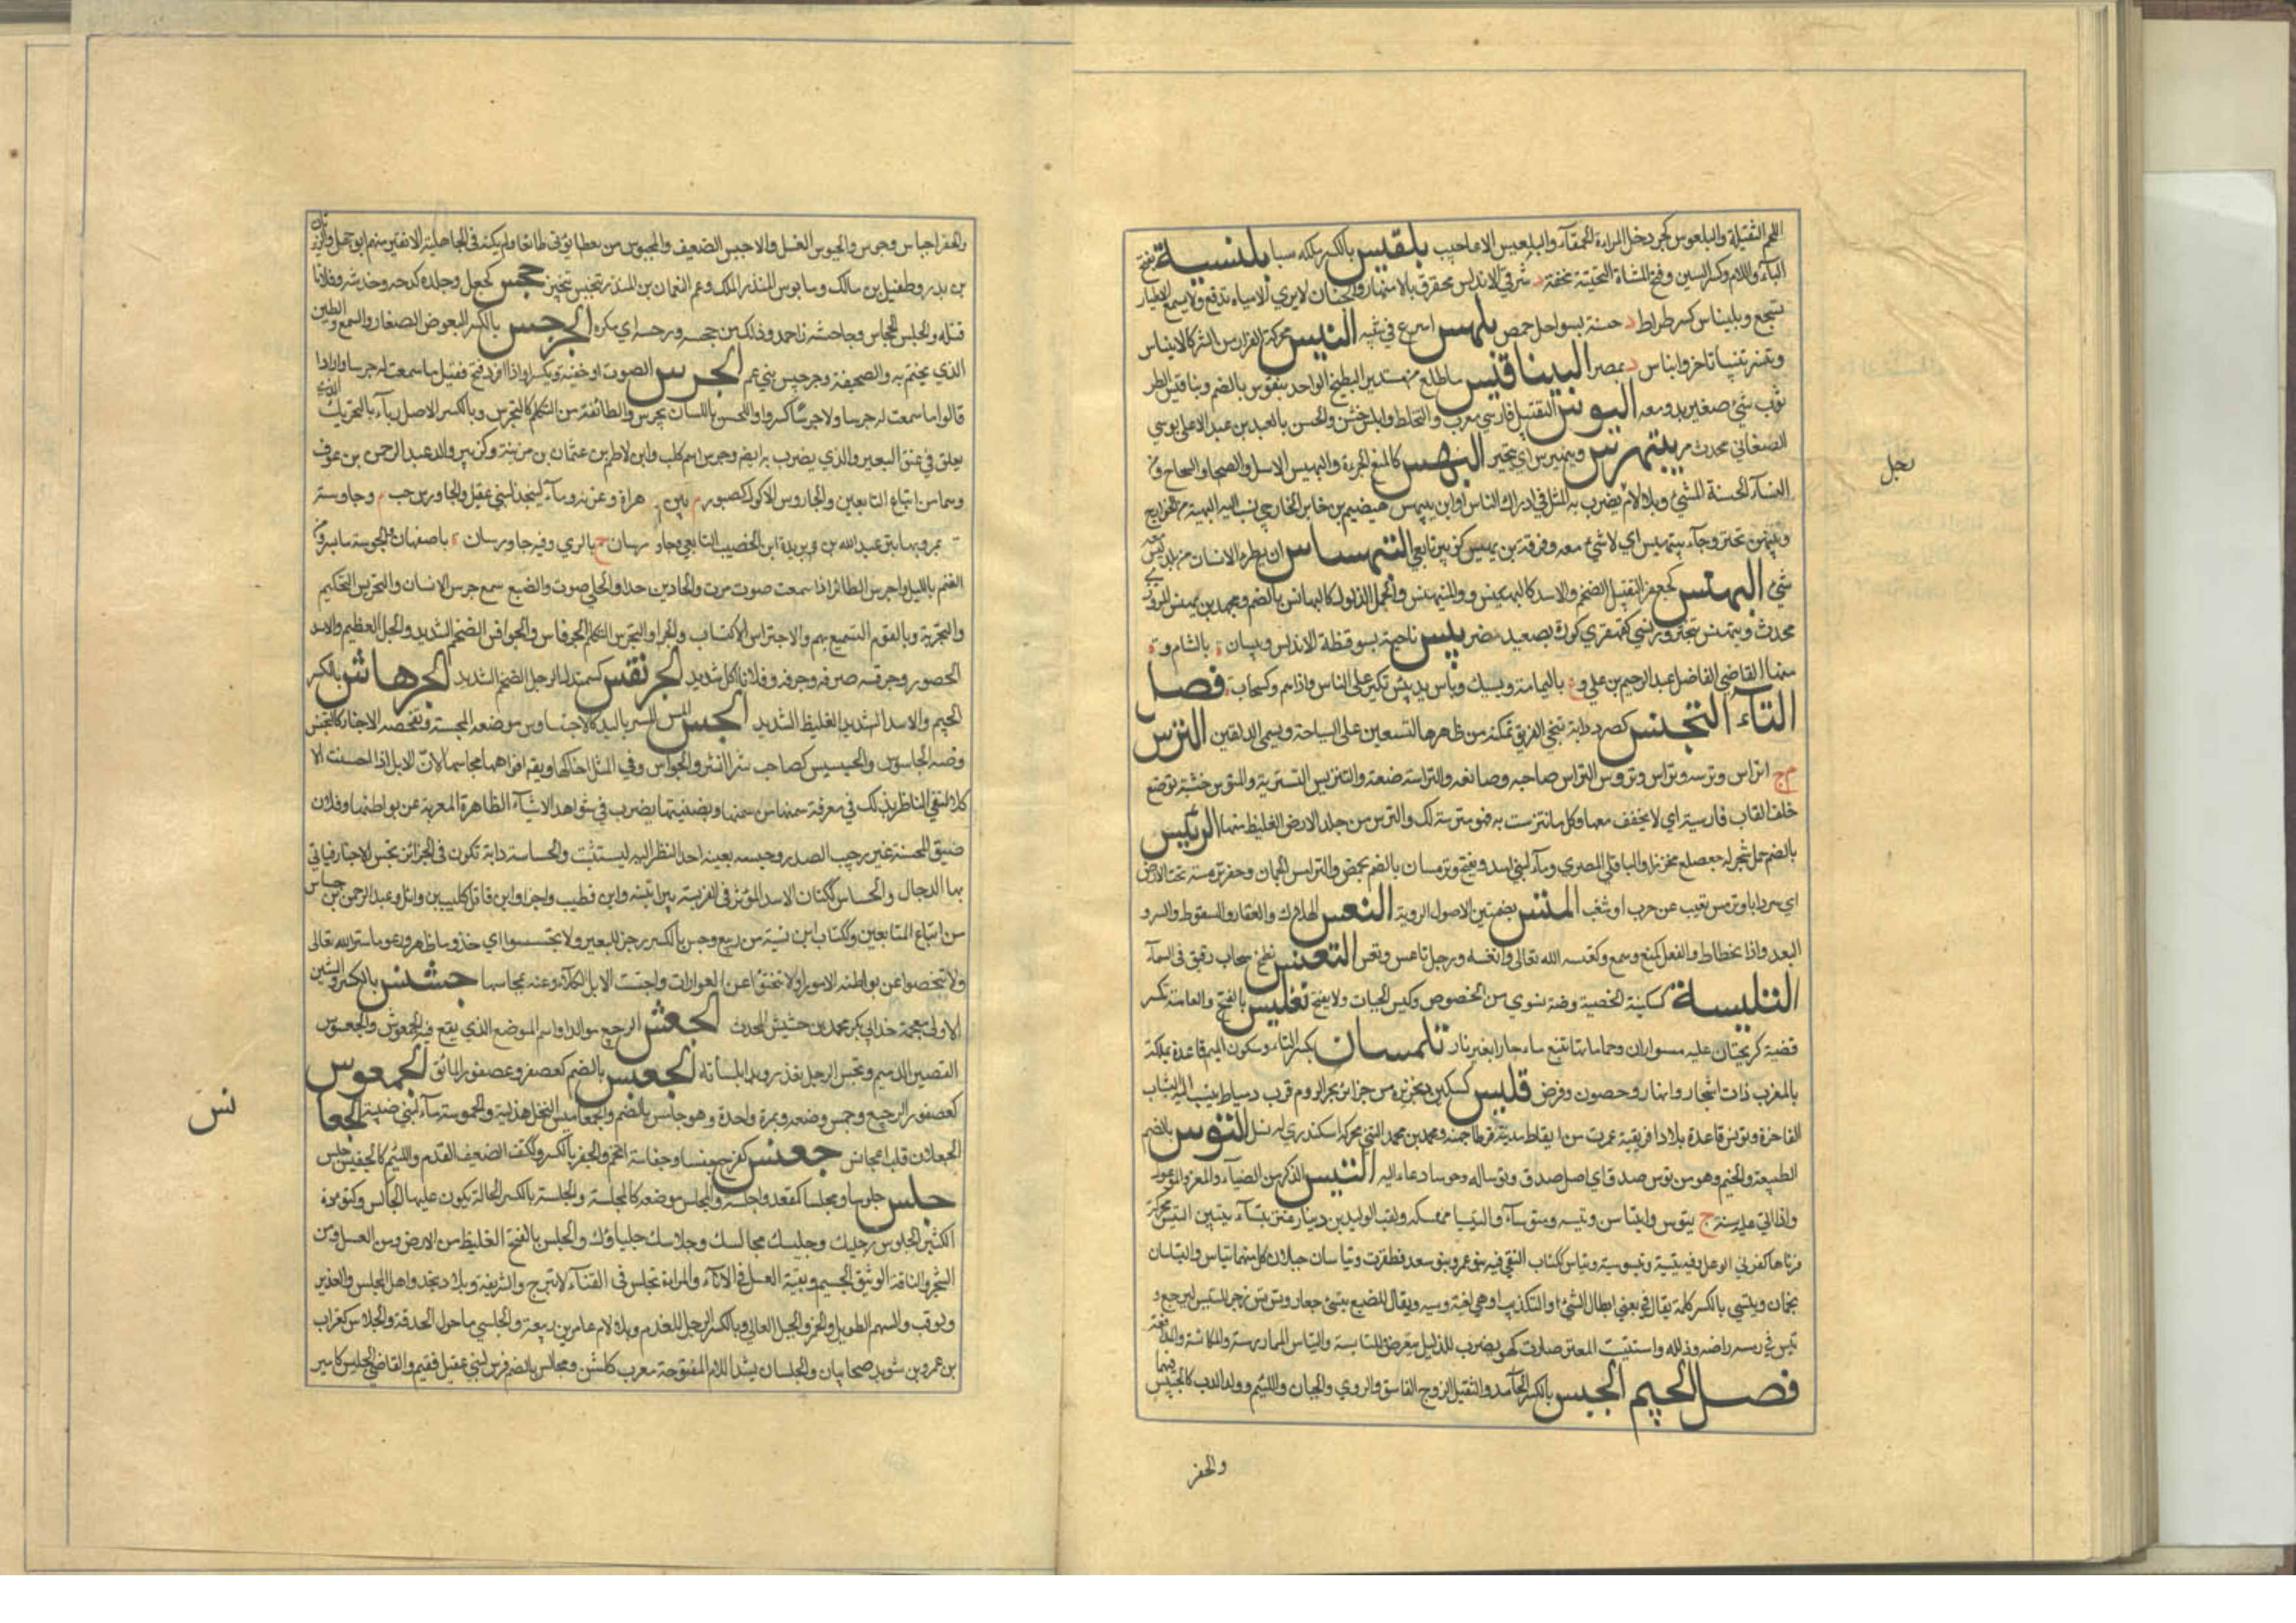 اللحم الثقيلة والبلعوس كجردحل المراءة الحمقآء والبلعبيس الاعاجيب بلقيس بالكسر ملكة سبا بلنسية بفتح
البآء واللام وكسر السين وفتح المثناة التحتية مخففة د شرقي الاندلس محفوف بالاشجار والجنان لا يرى الا مياه تدفع ولا يسمع الا اطيار
تسجع وبلنياس كسرطراط د حسنة بسواحل حمص بلهس اسرع في مشيه البنس محركة الفرار من الشر كالابناس
وبنس تبنيسا تاخر وابناس د بمصر البيناقيس ماطلع من مستدير البطيخ الواحد بنقوس بالضم وبناقيس الطر
ثوب شيء صغير يدو معه البوس التقبيل فارسي معرب والخلط وبابس خشن والحسن بن عبد الاعلى بوسي
الصنعاني محدث مر يتبهرس ويتبهنس اي يتبختر البهس كالمنع الجرءة والبيهس الاسد والشجاع ومن
النسآء الحسنة المشي وبلا لام يضرب به المثل في ادراك الثار وابن بيهس هيصم بن جابر الخارجي نسب اليه البيهسية من الخوارج
وبيهس تبختر وجآء يتبهس اي لا شيء معه وفرقة بن بهيس كزبير تابعي التبهساس ان يطرم الانسان من بلد ليس معه
شيء البهنس كجعفر الثقيل الضخم والاسد كالمبهنس والمتبهنس والجمل الذلول كالبهانس بالضم ومحمد بن بهنس المروزي
محدث وبتهنس تبختر وبهنسى كقهقرى كورة بصعيد مصر بيس ناحية بسرقسطة الاندلس وبيسان ة بالشام و ة
منها القاضي الفاضل عبد الرحيم بن علي و ع باليمامة وبيسك وبآس يبيس تكبر على الناس واذاهم وكسحاب ة فصل
التآء التخنس كصرد دابة تنجي الغريق تمكنه من ظهرها لتستعين على السباحة ويسمى الدلفين الترس
م ج اتراس وترسة وتراس وتروس والتراس صاحبه وصانعه والتراسة صنعته والتتريس التستر به والمترس خشبة توضع
خلف الباب فارسية اي لا تخف معها وكل ما تترست به فهو مترسة لك والترس من جلد الارض الغليظ منها الترمس
بالضم حمل شجر له حب مضلع محزز او الباقلى المصري ومآء لبني اسد ويفتح وترمسان بالضم ة بحمص والترامس الجمان وحفر ترمسة تحت الارض
اي سردابا وترمس تغيب عن حرب او شغب التسس بضمتين الاصول الردية التعس الهلاك والعثار والسقوط والشر و
البعد والانحطاط والفعل كمنع وسمع وتعسه الله تعالى واتعسه ورجل تاعس وتعس التغس لطخ سحاب رقيق في السمآء
التليسة كسكينة الخصية وهنة تسوى من الخوص وكيس الحساب ولا يفتح تفليس بالفتح والعامة تكسر
قصبة كرجستان عليه سوران وحماماتها تنبع مآء حارا بغير نار تلمسان بكسر التاء وسكون الميم قاعدة مملكة
بالمغرب ذات اشجار وانهار وحصون وفرض تنيس كسكين د بجزيرة من جزائر بحر الروم قرب دمياط ينسب اليه الثياب
الفاخرة وتونس قاعدة بلاد افريقية عمرت من انقاض مدينة قرطاجنة ومحمد بن محمد التنسي محركة اسكندري له نسل التوس بالضم
الطبيعة والخيم وهو من توس صدق اي اصل صدق وتوسا له وجوسا دعاء عليه التيس الذكر من الظبآء والمعز والوعول
واذا اتى عليه سنة ج تيوس واتياس وتيسة ومتيوسآء والتياس ممسكه ولقب الوليد بن دينار وعنز تيسآء بينة التيس محركة
قرناها كقرني الوعل وفيه تيسية وتيوسية وتياس ككتاب ع التقى فيه بنو عمرو وبنو سعد فظفرت وتياسان جبلان كل منهما تياس والتياسان
نجمان وتيسي بالكسر كلمة يقال في معنى ابطال الشيء والتكذيب او هي لغة وسبة ويقال للضبع تيسي جعار وتس تس زجر للتيس ليرجع و
تيس فرسه راضه وذلله واستتيست العنز صارت كهو يضرب للذليل يتعزز والمتايسة والتياس الممارسة والمكاسة والمدافعة
فصل الجيم الجبس بالكسر الجامد الثقيل الروح الفاسق والردي والجبان واللئيم وولد الدب كالجبيس فيهما
والحفر
نحل
والحفر اجباس وجبوس والجبوس الفسل والاجبس الضعيف والمجبوس من يعطا يؤتى طائعا ولم يكن في الجاهلية الا نفير منهم ابو جهل والزبرقان
بن بدر وطفيل بن مالك وقابوس بن المنذر الملك وعم النعمان بن المنذر تجبس تبختر جحس كجعل وجلده كدحه وخدشه وفلانا
قتله والجحس الجحاش وجاحشه زاحمه وذلك من جحسه ودحسه اي مكره الجرجس بالكسر البعوض الصغار والشمع والطين
الذي يختم به والصحيفة وجرجيس نبي عم الجرس الصوت او خفيه ويكسر او اذا افرد فتح فقيل ما سمعت له جرسا واذا
قالوا ما سمعت له حسا ولا جرسا كسروا واللحس باللسان يجرس والطائفة من الشيء والتكلم كالتجرس وبالكسر الاصل وبآء بالتحريك الذي
يعلق في عنق البعير والذي يضرب به ايضا وجرس اسم كلب وابن لاطم بن عثمان بن مزينة وكزبير والد عبد الرحمن بن عوف
وسماس اتباع التابعين والجاروس الاكول كصبور م بين هراة وغزنة ومآء بنجد لبني عقيل والجاورس حب م وجاورسة
ة بمرو بها قبر عبد الله بن بريدة ابن الحصيب التابعي وجاورسان ع بالري وفيرجاورسان ة باصفهان والجرسة ما يسرق من
الغنم بالليل واجرس الطائر اذا سمعت صوت مره والحادي حدا والحلي صوت والضبع سمع جرس الانسان والتجريس التحكيم
والتجربة وبالقوم التسميع بهم والاجتراس الاكتساب والتجرس التكلم الجرفاس والجرافس الضخم الشديد والجمل العظيم والاسد
الهصور وجرفسه صرعه وجرفه وفلان اكل شديدا الجرنفس كسمندل الرجل الضخم الشديد الجرهاس بالكسر
الجسيم والاسد الشديد الغليظ الشديد الجس المس باليد كالاجتساس وموضعه المجسة وتفحص الاخبار كالتجسس
ومنه الجاسوس والجسيس لصاحب سر الشر والجواس وفي المثل احناكها ويقال افواهها مجاسها لان الابل اذا احسنت الا
كل اكتفى الناظر بذلك في معرفة سمنها من ان يجسها ويضبثها يضرب في شواهد الاشيآء الظاهرة المعربة عن بواطنها وفلان
ضيق المجسة غير رحيب الصدر وجسه بعينه احد النظر اليه ليستثبت والجساسة دابة تكون في الجزائر تجس الاخبار فتاتي
بها الدجال والجساس ككتان الاسد المؤثر في الفريسة ببراثنه وابن قطيب راجز وابن مرة قاتل كليب بن وائل وعبد الرحمن بن جساس
من اتباع التابعين وككتاب ابن نشبة بن ربيع وجس بالكسر زجر للبعير ولا تجسسوا اي خذوا ما ظهر ودعوا ما ستر الله تعالى
ولا تفحصوا عن بواطن الامور او لا تبحثوا عن العورات واجتست الابل الكلأ رعته بمجاسها جشنس بالكسر والشين
الاولى معجمة جد ابي بكر محمد بن جشنس المحدث الجعس الرجيع مولد او اسم الموضع الذي يقع فيه الجعموس والجعسوس
القصير الدميم وتجعس الرجل تعذر وبذا بلسانه الجعبس بالضم كعصفر وعصفور المائق الجعموس
كعصفور الرجيع وجعمس وضعه بمرة واحدة وهو جعامس بالضم والجعاميس النخل هذلية والجعموسة مآء لبني ضبينة الجعا
نس
الجعلان قلب عجانس جفس كفرح جفسا وجفاسة اتخم والجفس بالكسر وككتف الضعيف الفدم واللئيم كالجفيس جلس
جلس جلوسا ومجلسا كمقعد واجلسته والمجلس موضعه كالمجلسة والجلسة بالكسر الحالة يكون عليها الجالس وكتؤدة
الكثير الجلوس وجلسك وجليسك مجالسك وجلاسك جلساؤك والجلس بالفتح الغليظ من الارض ومن العسل ومن
الشجر والناقة الوثيقة الجسيم وبقية العسل في الانآء والمراة تجلس في الفنآء لا تبرح والشريفة وبلاد نجد واهل المجلس والغدير
والوقب والسهم الطويل والخمر والجبل العالي وبالكسر الرجل الفدم وبلا لام عامر بن ربيعة والجلسي ما حول الحدقة والجلاس كغراب
بن عمرو بن سويد صحابيان والجلسان بشد اللام المفتوحة معرب كلشن ومجالس بالضم فرس لبني عقيل او فقيم والقاضي الجليس كامير